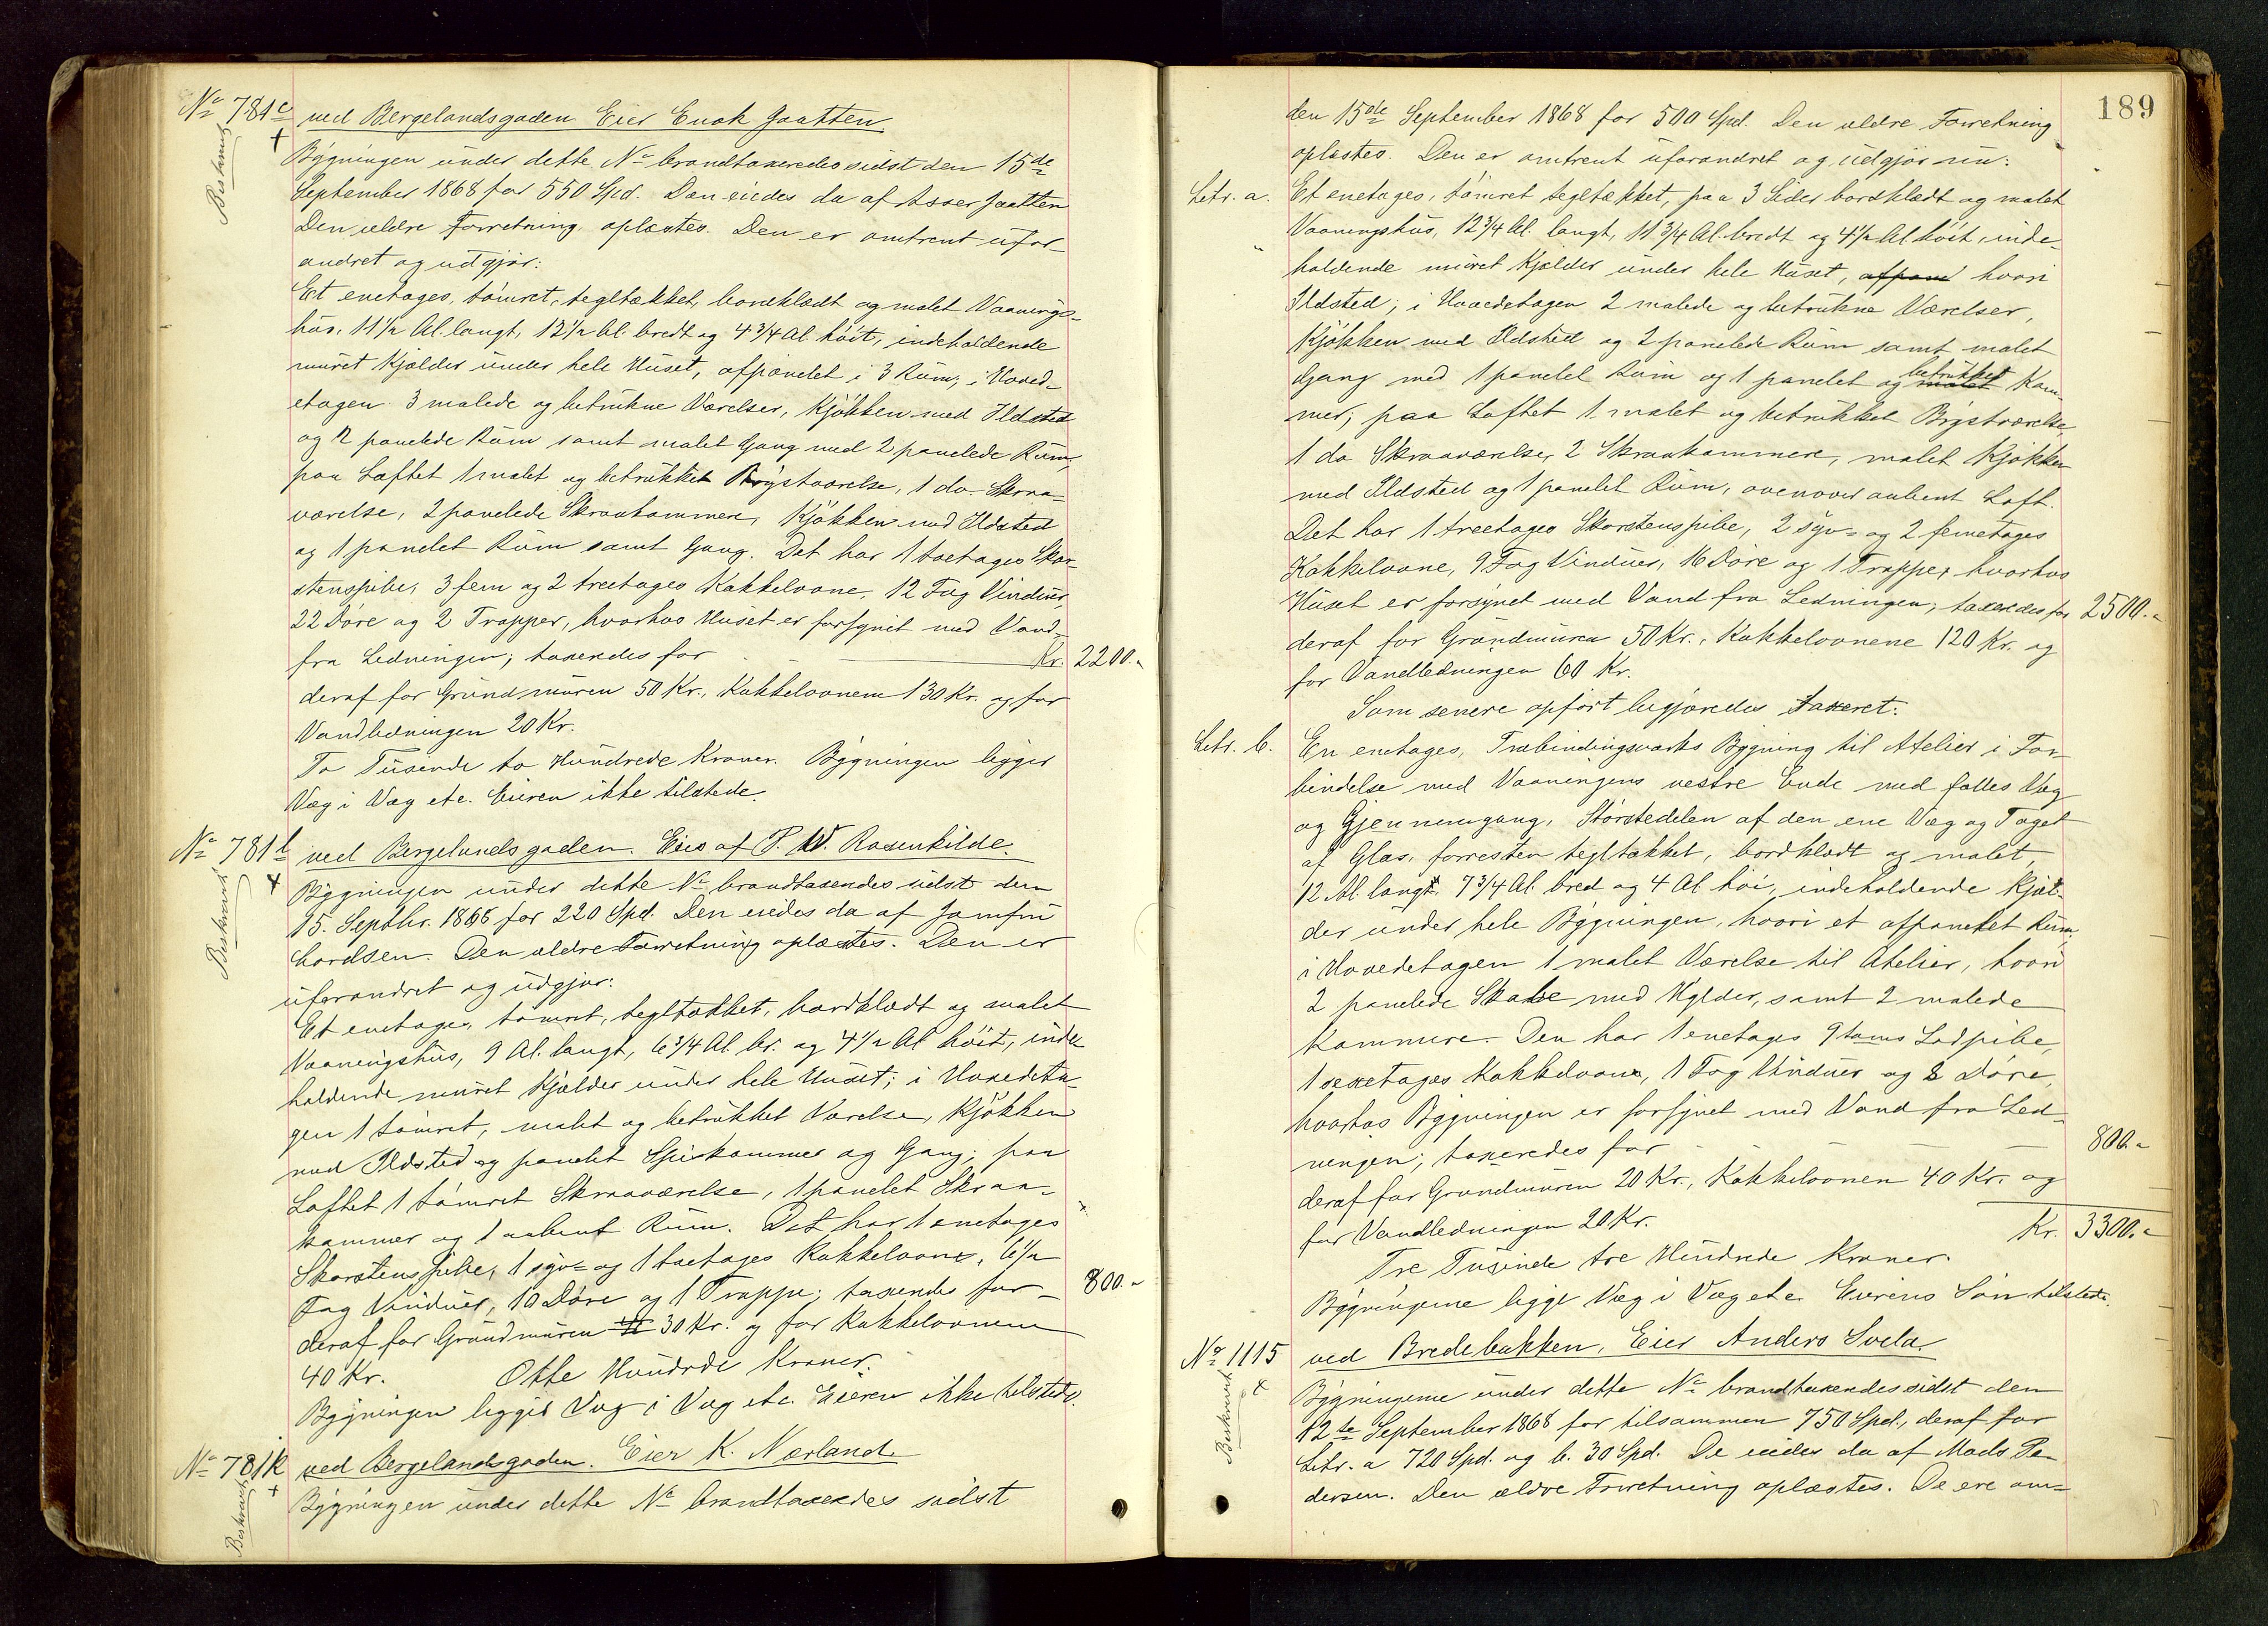 No 781c ved Bergelandsgaden Eier Enok Jaatten
Beskrevet
+
Bÿgningen under dette No brandtaxeredes sidst den 15de
September 1868 for 550 Spd. Den eiedes da af Asser Jaatten
Den ældre Forretning oplæstes. Den er omtrent ufor-
andret og udgjør:
Et enetages, tømret, tegltækket, bordklædt og malet Vaanings-
hus, 11 1/2 Al. langt, 12 1/2 Al. bredt og 4 3/4 Al høit, indeholdende
muret Kjælder under hele Huset, afpanelet i 3 Rum; i Hoved-
etagen 3 malede og betrukne Værelser, Kjøkken med Ildsted
og 2 panelede Rum samt malet Gang med 2 panelede Rum,
paa Loftet 1 malet og betrukket Brystværelse, 1 do. Skraa-
værelse, 2 panelede Skraakammere, Kjøkken med Ildsted
og 1 panelet Rum samt Gang. Det har 1 toetages Skor-
stenspibe, 3 fem og 2 treetages Kakkelovne, 12 Fag Vinduer,
22 Døre og 2 Trapper, hvorhos Huset er forsynet med Vand
fra Ledningen; taxeredes for Kr. 2200.-
deraf for Grundmuren 50 Kr., Kakkelovnene 130 Kr. og for
Vandledningen 20 Kr.
To Tusende to Hundrede Kroner. Bygningen ligger
Væg i Væg etc. Eieren ikke tilstede.
No 781 ved Bergelandsgaden. Eies af P. W. Rosenkilde.
Beskrevet
+
Bygningen under dette No brandtaxeredes sidst den
15. Septbr. 1868 for 220 Spd. Den eiedes da af Jomfru
Den ældre Forretning oplæstes. Den er
uforandret og udgjør:
Et enetages, tømret, tegltækket, bordklædt og malet
Vaaningshus, 9 Al. langt, 6 3/4 Al. br. og 4 1/2 Al høit, inde-
holdende muret Kjælder under hele Huset; i Hovedeta-
gen 1 tømret, malet og betrukket Værelse, Kjøkken
med Ildsted og panelet Spiskammer og Gang; paa
Loftet 1 tømret Skraaværelse, 1 panelet Skraa-
kammer og 1 aabent Rum. Det har 1 enetages
Skorstenspibe, 1 syv- og 1 toetages Kakkelovne, 6 1/2
Fag Vinduer, 10 Døre og 1 Trappe; taxeredes for - 800.-
deraf for Grundmuren 30 Kr. og for Kakkelovnene
40 Kr. Otte Hundrede Kroner.
Bygningen ligger Væg i Væg etc. Eieren ikke tilstede.
No 781k ved Bergelandsgaden. Eier K. Nærland
Beskrevet
+
Bygningen under dette No brandtaxeredes sidst
189
den 15de September 1868 for 500 Spd. Den ældre Forretning
oplæstes. Den er omtrent uforandret og udgjør nu:
Litr. a. Et enetages, tømret, tegltækket, paa 3 Sider bordklædt og malet
Vaaningshus, 12 3/4 Al. langt, 11 3/4 Al. bredt og 4 1/2 Al høit, inde-
holdende muret Kjælder under hele Huset, afpane hvori
Ildsted; i Hovedetagen 2 malede og betrukne Værelser,
Kjøkken med Ildsted og 2 panelede Rum samt malet
Gang med 1 panelet Rum og 1 panelet og malet betrukket Kam-
mer; paa Loftet 1 malet og betrukket Brystværelse,
1 do Skraaværelse, 2 Skraakammere, malet Kjøkken
med Ildsted og 1 panelet Rum, ovenover aabent Loft.
Det har 1 treetages Skorstenspibe, 2 syv- og 2 femetages
Kakkelovne, 9 Fag Vinduer, 16 Døre og 1 Trappe, hvorhos
Huset er forsynet med Vand fra Ledningen; taxeredes for 2500.-
deraf for Grundmuren 50 Kr., Kakkelovnene 120 Kr. og
for Vandledningen 60 Kr.
Som senere opført begjæredes taxeret:
Litr. b. En enetages, Træbindingsværks Bygning til Atelier i For-
bindelse med Vaaningens vestre Ende med fælles Væg
og Gjennemgang, Størstedelen af den ene Væg og Taget
af Glas, forresten tegltækket, bordklædt og malet,
12 Al. lang, 7 3/4 Al. bred og 4 Al høi, indeholdende Kjæl-
der under hele Bygningen, hvori et afpanelet Rum;
i Hovedetagen 1 malet Værelse til Atelier, hvori
2 panelede Skabe med Hylder, samt 2 malede
Kammere. Den har 1 enetages 9 toms Lodpibe,
1 sexetages Kakkelovn, 1 Fag Vinduer og 8 Døre,
hvorhos Bygningen er forsynet med Vand fra Led-
ningen; taxeredes for 800.-
deraf for Grundmuren 20 Kr., Kakkelovnen 40 Kr. og
for Vandledningen 20 Kr. Kr. 3300.-
Tre Tusinde tre Hundrede Kroner.
Bygningerne ligge Væg i Væg etc. Eierens Søn tilstede.
No 1115 ved Bredebakken, Eier Anders Svela
Beskrevet
+
Bygningerne under dette No brandtaxeredes sidst den
12te September 1868 for tilsammen 750 Spd., deraf for
Litr. a 720 Spd. og b. 30 Spd. De eiedes da af Mads Pe-
dersen. Den ældre Forretning oplæstes. De ere om-